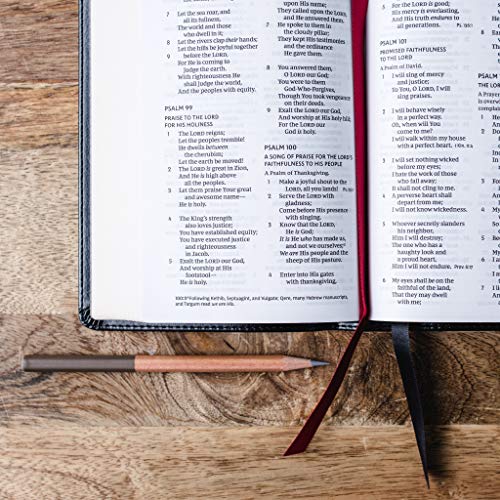 7 Let the sea roar, and
all its fullness,
The world and those
who dwell in it;
8 Let the rivers clap their hands;
Let the hills be joyful together
before the LORD,
9 For He is coming to
judge the earth.
With righteousness He
shall judge the world,
And the peoples with equity.
PSALM 99
PRAISE TO THE LORD
FOR HIS HOLINESS
1 The LORD reigns;
Let the peoples tremble!
He dwells between
the cherubim;
Let the earth be moved!
2 The LORD is great in Zion,
And He is high above
all the peoples.
3 Let them praise Your great
and awesome name—
He is holy.
4 The King's strength
also loves justice;
You have established equity;
You have executed justice
and righteousness
in Jacob.
5 Exalt the LORD our God,
And worship at His
footstool—
He is holy.
upon His name;
They called upon the LORD,
and He answered them.
7 He spoke to them in
the cloudy pillar;
They kept His testimonies
and the ordinance
He gave them.
8 You answered them,
O LORD our God;
You were to them
God-Who-Forgives,
Though You took vengeance
on their deeds.
9 Exalt the LORD our God,
And worship at His holy hill;
For the LORD our
God is holy.
PSALM 100
A SONG OF PRAISE FOR THE LORD'S
FAITHFULNESS TO HIS PEOPLE
A Psalm of Thanksgiving.
1 Make a joyful shout to the
LORD, all you lands!
2 Serve the LORD with
gladness;
Come before His presence
with singing.
3 Know that the LORD,
He is God;
It is He who has made us,
and not we ourselves;
We are His people and the
sheep of His pasture.
4 Enter into His gates
with thanksgiving,
100:3 Following Kethib, Septuagint, and Vulgate; Qere, many Hebrew manuscripts,
and Targum read we are His.
5 For the LORD is good;
His mercy is everlasting,
And His truth endures to
all generations.
PSALM 101
PROMISED FAITHFULNESS
TO THE LORD
A Psalm of David.
1 I will sing of mercy
and justice;
To You, O LORD, I will
sing praises.
2 I will behave wisely
in a perfect way.
Oh, when will You
come to me?
I will walk within my house
with a perfect heart.
3 I will set nothing wicked
before my eyes;
I hate the work of those
who fall away;
It shall not cling to me.
4 A perverse heart shall
depart from me;
I will not know wickedness.
5 Whoever secretly slanders
his neighbor,
Him I will destroy;
The one who has a
haughty look and
a proud heart,
Him I will not endure.
6 My eyes shall be on the
faithful of the land,
That they may dwell
with me;
PSALM
A Prayer
is overw
compla
1
2
3
4
5
6
7